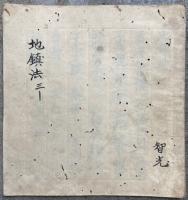 地鎮法三
智光